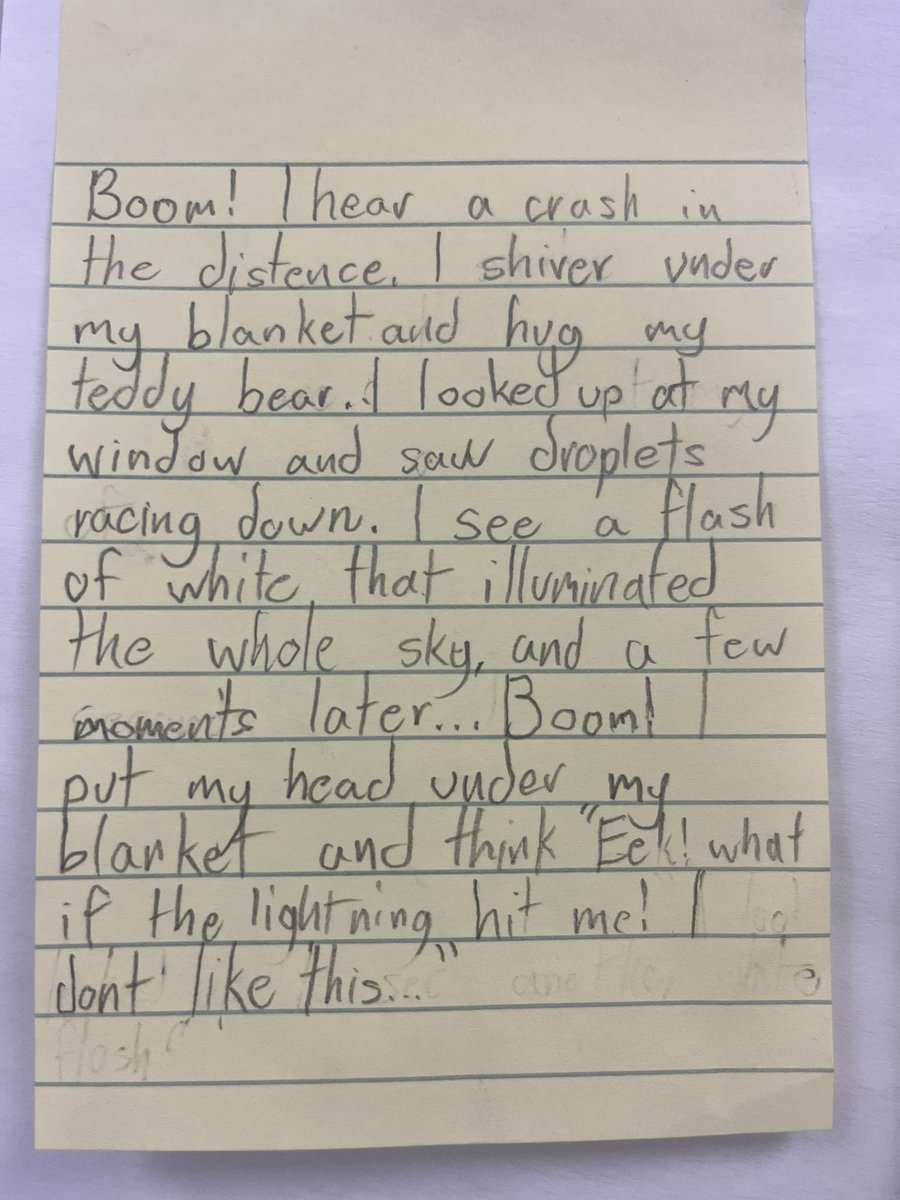 Boom! I hear a crash in
the distence. I shiver under
my blanket and hug my
teddy bear. I looked up at my
window and saw droplets
racing down. I see a flash
of white that illuminated
the whole sky, and a few
moments later... Boom! I
put my head under my
blanket and think "Eek! what
if the lightning hit me! I
dont' like this..."
flash